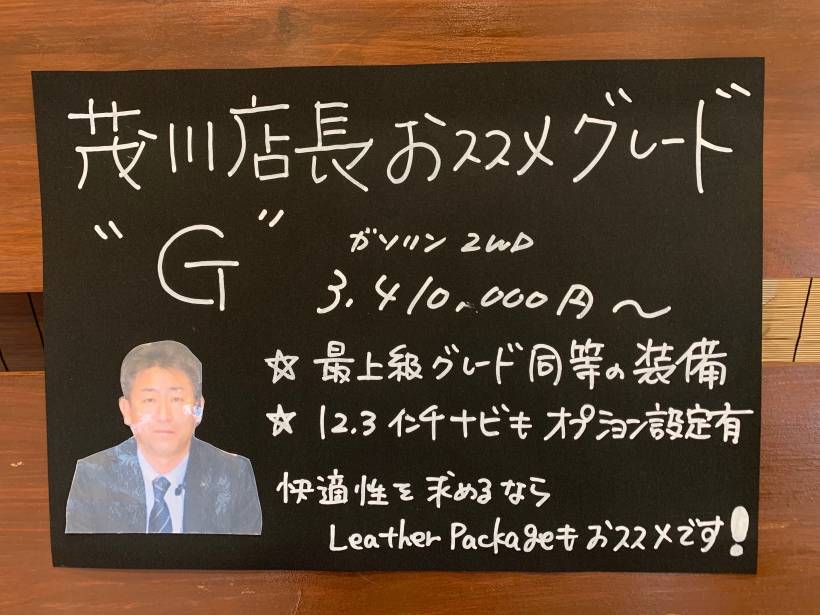 茂川店長おススメグレード
"G"
ガソリン 2WD
3,410,000円〜
☆ 最上級グレード同等の装備
☆ 12.3インチナビもオプション設定有
快適性を求めるなら
Leather Packageもおススメです!